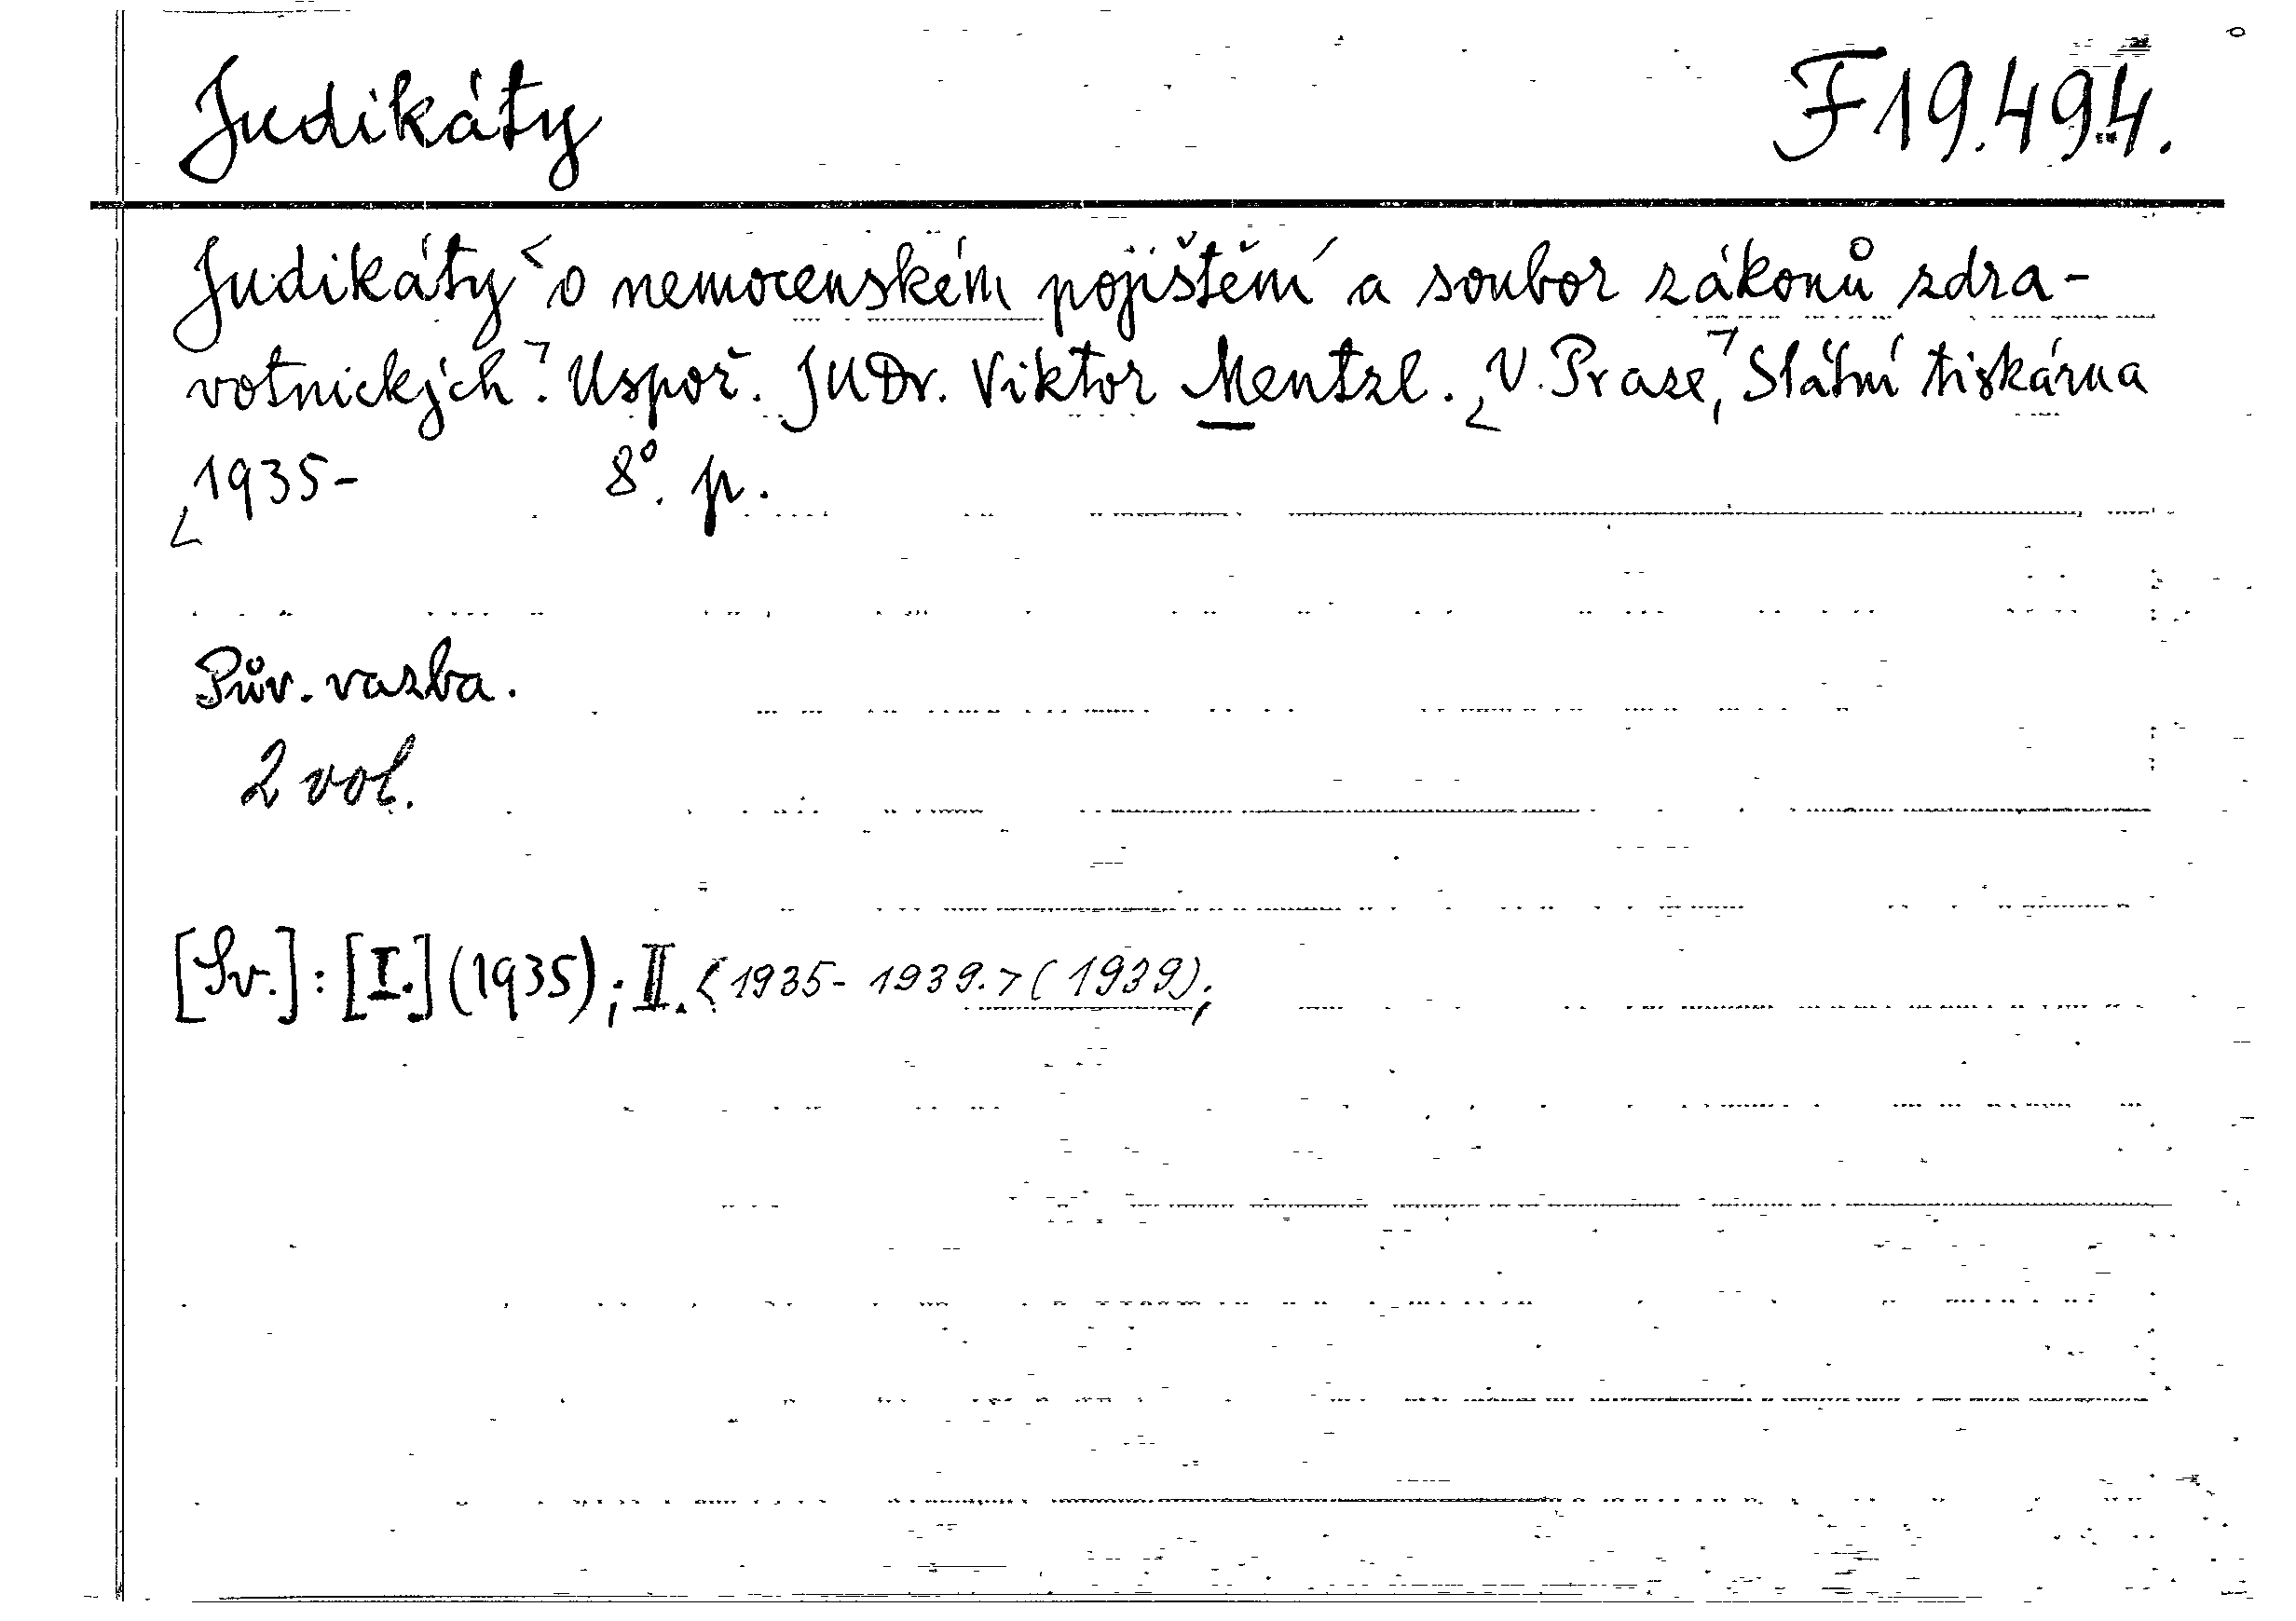 Judikáty F 19.494.
Judikáty < o nemocenském pojištění a soubor zákonů zdra-
votnických.⌝ Uspoř. JUDr. Viktor Mentzl. ⌞V Praze,⌝ Státní tiskárna
⌞1935- 8°. p.
Pův. vazba.
2 vol.
[Sv.]: [I.] (1935); II. <1935-1939.> (1939);